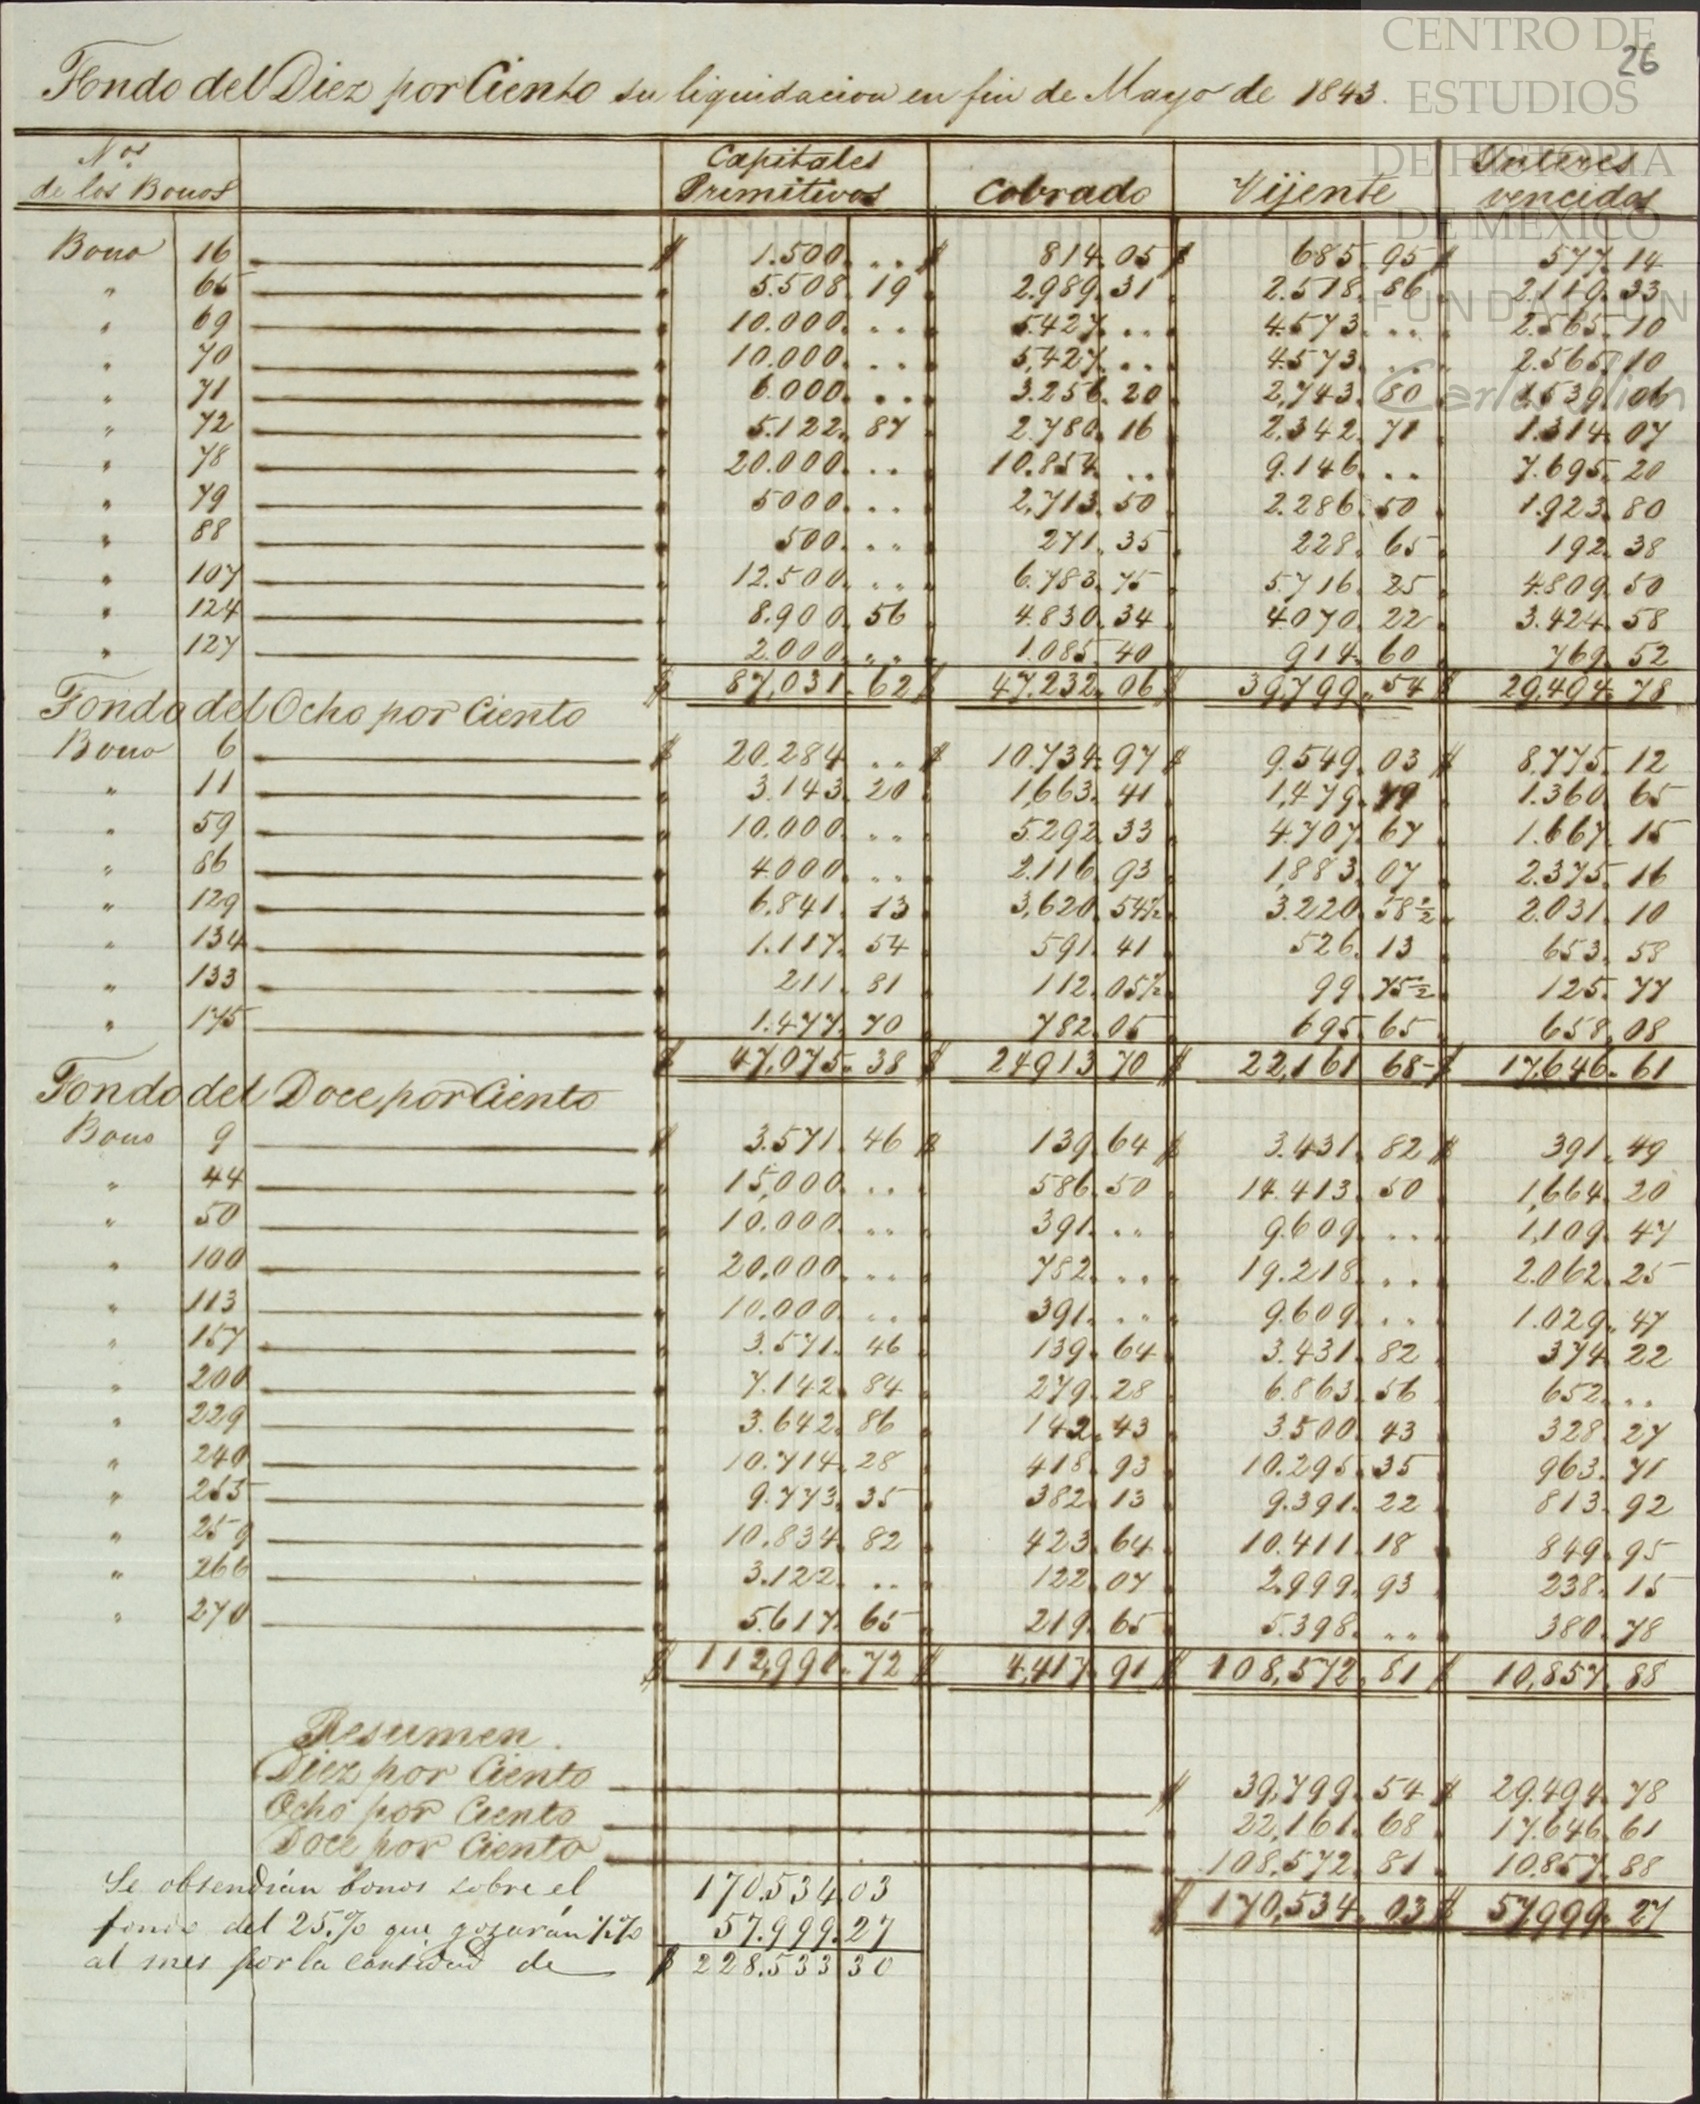 CENTRO DE
ESTUDIOS
DE HISTORIA
DE MEXICO
FUNDACION
Carlos Slim
26
Fondo del Diez por Ciento su liquidacion en fin de Mayo de 1843.
Nos. de los Bonos Capitales Primitivos Cobrado Vijente Interes vencidos
Bono 16 $ 1.500. .. $ 814. 05 $ 685. 95 $ 577. 14
" 65 " 5.508. 19 " 2.989. 31 " 2.518. 86 " 2.119. 33
" 69 " 10.000. .. " 5.427. .. " 4.573. .. " 2.565. 10
" 70 " 10.000. .. " 5,427. .. " 4.573. .. " 2.565. 10
" 71 " 6.000. .. " 3.256. 20 " 2,743. 80 " 1.539. 06
" 72 " 5.122. 87 " 2.780. 16 " 2,342. 71 " 1.314. 07
" 78 " 20.000. .. " 10.854. .. " 9.146. .. " 7.695. 20
" 79 " 5000. .. " 2,713. 50 " 2.286. 50 " 1.923. 80
" 88 " 500. .. " 271. 35 " 228. 65 " 192. 38
" 107 " 12.500. .. " 6.783. 75 " 5.716. 25 " 4.809. 50
" 124 " 8.900. 56 " 4.830. 34 " 4.070. 22 " 3.424. 58
" 127 " 2.000. .. " 1.085. 40 " 914. 60 " 769. 52
$ 87,031. 62 $ 47.232. 06 $ 39,799. 54 $ 29,494. 78
Fondo del Ocho por Ciento
Bono 6 $ 20.284. .. $ 10.734. 97 $ 9.549. 03 $ 8.775. 12
" 11 " 3.143. 20 " 1,663. 41 " 1,479. 79 " 1.360. 65
" 59 " 10.000. .. " 5.292. 33 " 4.707. 67 " 1.667. 15
" 86 " 4.000. .. " 2.116. 93 " 1,883. 07 " 2.375. 16
" 129 " 6.841. 13 " 3,620. 54½ " 3.220. 58½ " 2.031. 10
" 134 " 1.117. 54 " 591. 41 " 526. 13 " 653. 58
" 133 " 211. 81 " 112. 05½ " 99. 75½ " 125. 77
" 175 " 1.477. 70 " 782. 05 " 695. 65 " 658. 08
$ 47,075. 38 $ 24913 70 $ 22,161 68 $ 17,646. 61
Fondo del Doce por Ciento
Bono 9 $ 3.571. 46 $ 139. 64 $ 3.431. 82 $ 391. 49
" 44 " 15,000. .. " 586. 50 " 14.413. 50 " 1,664. 20
" 50 " 10.000. .. " 391. .. " 9.609. .. " 1,109. 47
" 100 " 20,000. .. " 782. .. " 19.218. .. " 2.062. 25
" 113 " 10.000. .. " 391. .. " 9.609. .. " 1.029. 47
" 157 " 3.571. 46 " 139. 64 " 3.431. 82 " 374. 22
" 200 " 7.142. 84 " 279. 28 " 6.863. 56 " 652. ..
" 229 " 3.642. 86 " 142. 43 " 3.500. 43 " 328. 27
" 240 " 10.714. 28 " 418. 93 " 10.295. 35 " 963. 71
" 255 " 9.773. 35 " 382. 13 " 9.391. 22 " 813. 92
" 259 " 10.834. 82 " 423. 64 " 10.411. 18 " 849. 95
" 266 " 3.122. .. " 122. 07 " 2.999. 93 " 238. 15
" 270 " 5.617. 65 " 219. 65 " 5.398. .. " 380. 78
$ 112,990. 72 $ 4,417. 91 $ 108,572. 81 $ 10,857. 88
Resumen.
Diez por Ciento $ 39,799. 54 $ 29.494. 78
Ocho por Ciento " 22,161. 68 " 17.646. 61
Doce por Ciento " 108,572. 81 " 10.857. 88
$ 170,534. 03 $ 57,999. 27
Se obtendrían bonos sobre el 170.534.03
fondo del 25.% que gozarán ½% 57.999.27
al mes por la cantidad de $ 228.533 30